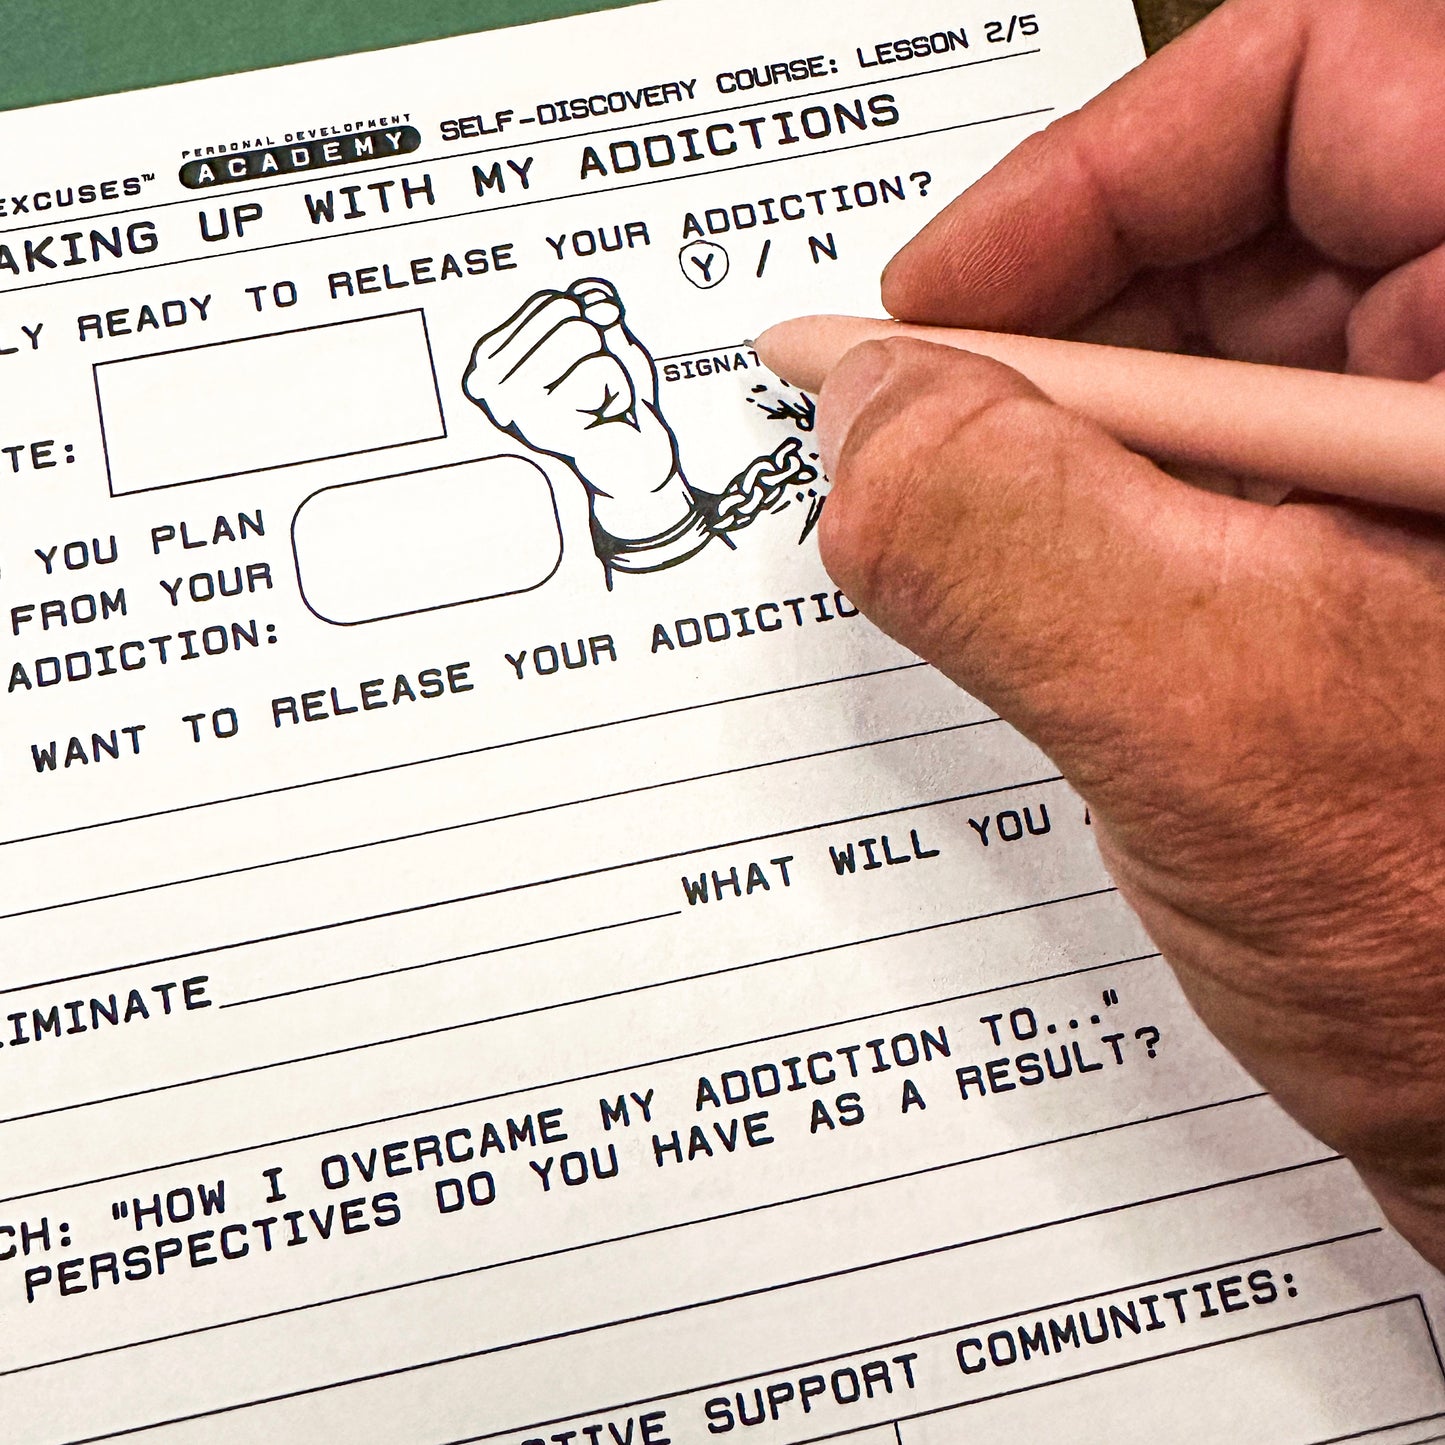 EXCUSES™ PERSONAL DEVELOPMENT ACADEMY SELF-DISCOVERY COURSE: LESSON 2/5
AKING UP WITH MY ADDICTIONS
LY READY TO RELEASE YOUR ADDICTION?
Y / N
SIGNAT
TE:
YOU PLAN
FROM YOUR
ADDICTION:
WANT TO RELEASE YOUR ADDICTIO
WHAT WILL YOU
IMINATE
CH: "HOW I OVERCAME MY ADDICTION TO..."
PERSPECTIVES DO YOU HAVE AS A RESULT?
TIVE SUPPORT COMMUNITIES: